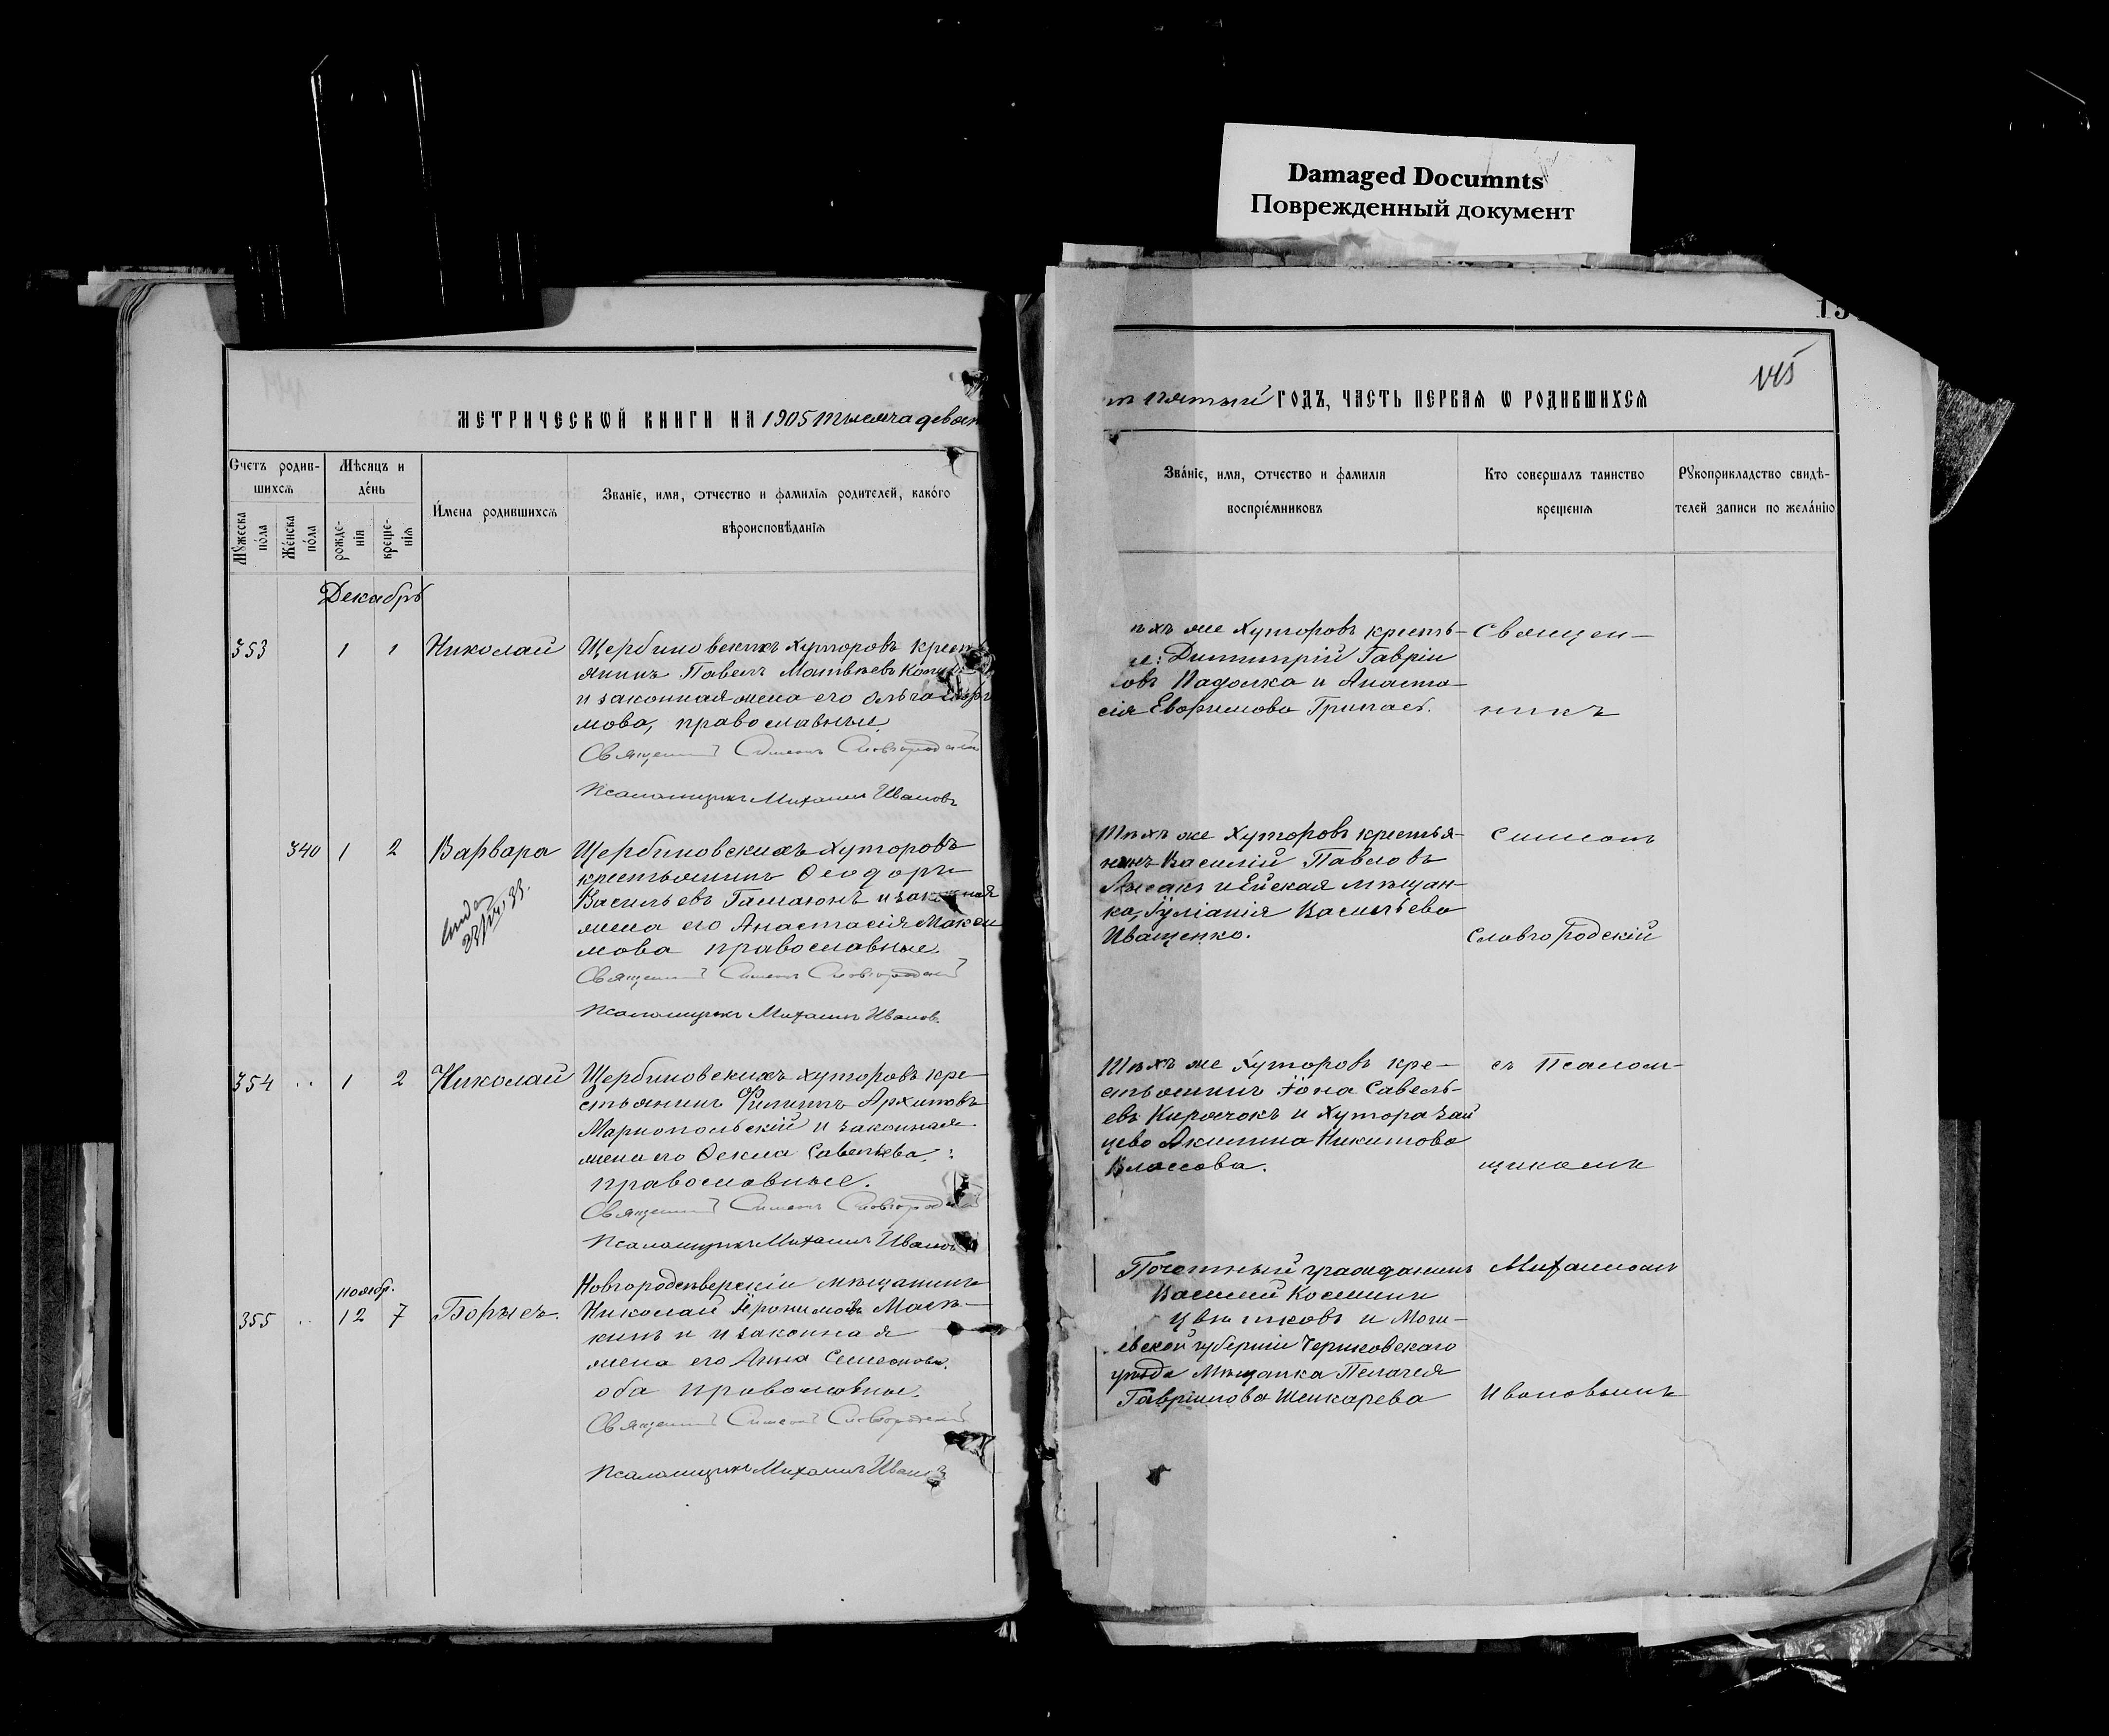 Damaged Documnts
Поврежденный документ
МЕТРИЧЕСКѠЙ КНИГИ НА 1905 тысяча девят
Счетъ родив-
шихсѧ
Мꙋжеска
пола
Женска
пола
Мѣсяцъ и
день
рожде-
нія
креще-
нія
Имена родившихсѧ
Званіе, имя, отчество и фамилія родителей, какого
вѣроисповѣданія
Декабрь
353 1 1 Николай
Щербиновскихъ хуторовъ крест
янинъ Павелъ Матвѣевъ
и законная жена его Ольга
мова, православные
Священникъ Симеонъ Славгородскій
Псаломщикъ Михаилъ Ивановъ
340 1 2 Варвара
Щербиновскихъ хуторовъ
крестьянинъ Ѳеодоръ
Васильевъ Гамаюнъ и законная
жена его Анастасія Макси
мова православные.
Священникъ Симеонъ Славгородскій
Псаломщикъ Михаилъ Иванов.
354 .. 1 2 Николай
Щербиновскихъ хуторовъ кре-
стьянинъ Филиппъ Архиповъ
Маріопольскій и законная
жена его Ѳекла Савельева,:
православные.
Священникъ Симеонъ Славгородскій
Псаломщикъ Михаилъ Иванов
ноябр.
355 .. 12 7 Борисъ.
Новгородсѣверскій мѣщанинъ
Николай Іеронимовъ
и законная
жена его Анна Семеонова.
оба православные.
Священникъ Симеонъ Славгородскій
Псаломщикъ Михаилъ Иванов
пятый ГОДЪ, ЧАСТЬ ПЕРВАЯ Ѡ РОДИВШИХСЯ
145
Званіе, имя, отчество и фамилія
воспріемниковъ
Кто совершалъ таинство
крещенія
Рꙋкоприкладство свидѣ-
телей записи по желанію
ѣхъ же хуторовъ кресть-
е: Димитрій Гавріи
овъ Падолка и Анаста-
сія Евфимова Грипась.
Тѣхъ же хуторовъ крестья-
нинъ Василій Павловъ
Лысакъ и Ейская мѣщан-
ка, Іуліанія Васильева
Иващенко.
Тѣхъ же хуторовъ кре-
стьянинъ Іона Савель-
евъ Кирячокъ и хутора Зай
цево Акилина Никитова
Власова.
Почетный гражданинъ
Василій Косминъ
Цвѣтковъ и Моги-
евской губерніи Чериковскаго
уѣзда мѣщанка Пелагея
Гавріилова Шенкарева
Священ-
никъ
Симеонъ
Славгородскій
съ Псалом-
щикомъ
Михаиломъ
Ивановымъ